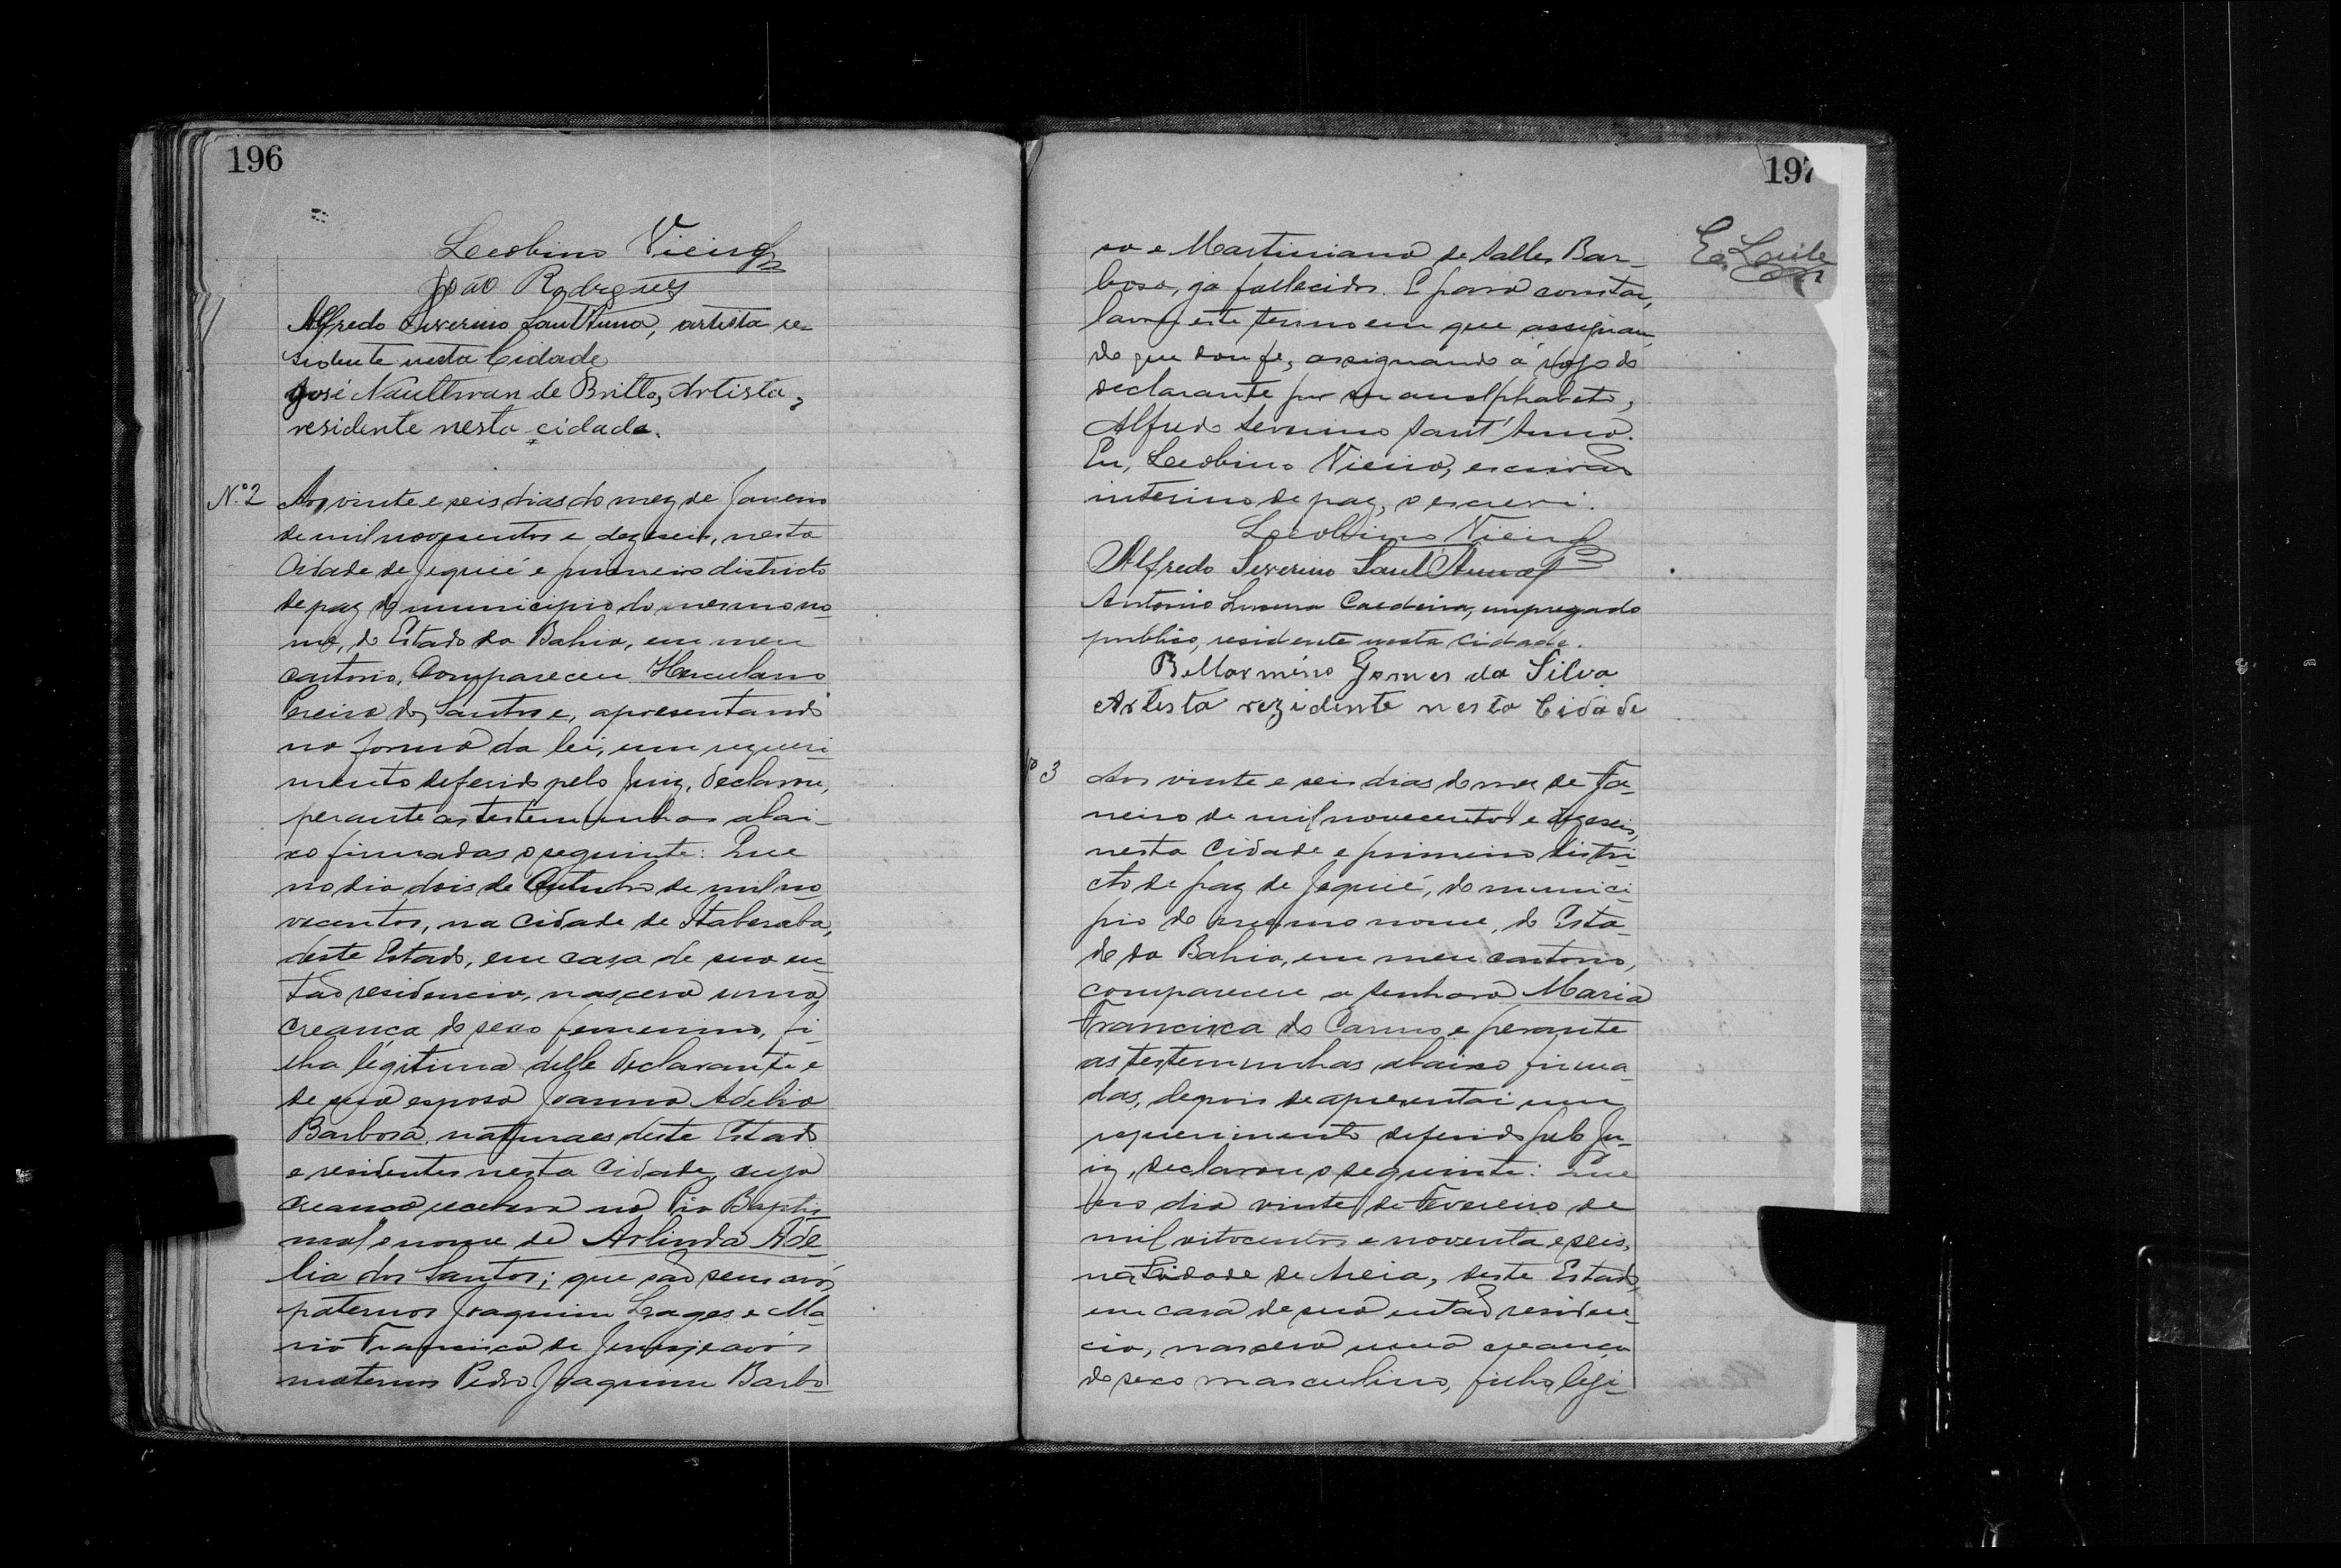 196
Leobino Vieira
João Rodrigues
Alfredo Severino Sant'Anna, artista re-
sidente nesta Cidade
José Naulthvan de Britto, Artista,
residente nesta cidade.
Nº 2 Aos vinte e seis dias do mez de Janeiro
de mil novecentos e dezeseis, nesta
Cidade de Jequié e primeiro districto
de paz do municipio do mesmo no-
me, do Estado da Bahia, em meu
cartorio, Compareceu Herculano
Pereira dos Santos e, apresentando
na forma da lei, um requeri-
mento deferido pelo Juiz, declarou,
perante as testemunhas abai-
xo firmadas o seguinte: Que
no dia dois de Outubro de mil no-
vecentos, na Cidade de Itaberaba,
deste Estado, em casa de sua en-
tão residencia, nascera uma
creança do sexo femenino, fi-
lha legitima delle declarante e
de sua esposa Joanna Adelia
Barbosa, naturaes deste Estado
e residentes nesta Cidade, cuja
creança recebera na Pia Baptis-
mal o nome de Arlinda Adé-
lia dos Santos; que são seus avós
paternos Joaquim Lages e Ma-
ria Francisca de Jesus, e avós
maternos Pedro Joaquim Barbo-
197
E. Leite
sa e Martiniana de Salles Bar-
bosa, já fallecidos. E para constar,
lavrei este termo em que assignam,
do que dou fé, assignando a rogo do
declarante por ser analphabeto,
Alfredo Severino Sant'Anna.
Eu, Leobino Vieira, escrivão
interino de paz, o escrevi.
Leobino Vieira
Alfredo Severino Sant'Anna
Antonio Lucena Caldeira, empregado
publico, residente nesta cidade.
Bellarmino Gomes da Silva
Artista rezidente nesta Cidade
Nº 3 Aos vinte e seis dias do mez de Ja-
neiro de mil novecentos e dezeseis,
nesta Cidade e primeiro distri-
cto de paz de Jequié, do munici-
pio do mesmo nome, do Esta-
do da Bahia, em meu cartorio,
compareceu a senhora Maria
Francisca do Carmo e perante
as testemunhas abaixo firma-
das, depois de apresentar um
requerimento deferido pelo Ju-
iz, declarou o seguinte: Que
no dia vinte de Fevereiro de
mil oitocentos e noventa e seis,
na Cidade de Areia, deste Estado,
em casa de sua então residen-
cia, nascera uma creança
do sexo masculino, filho legi-